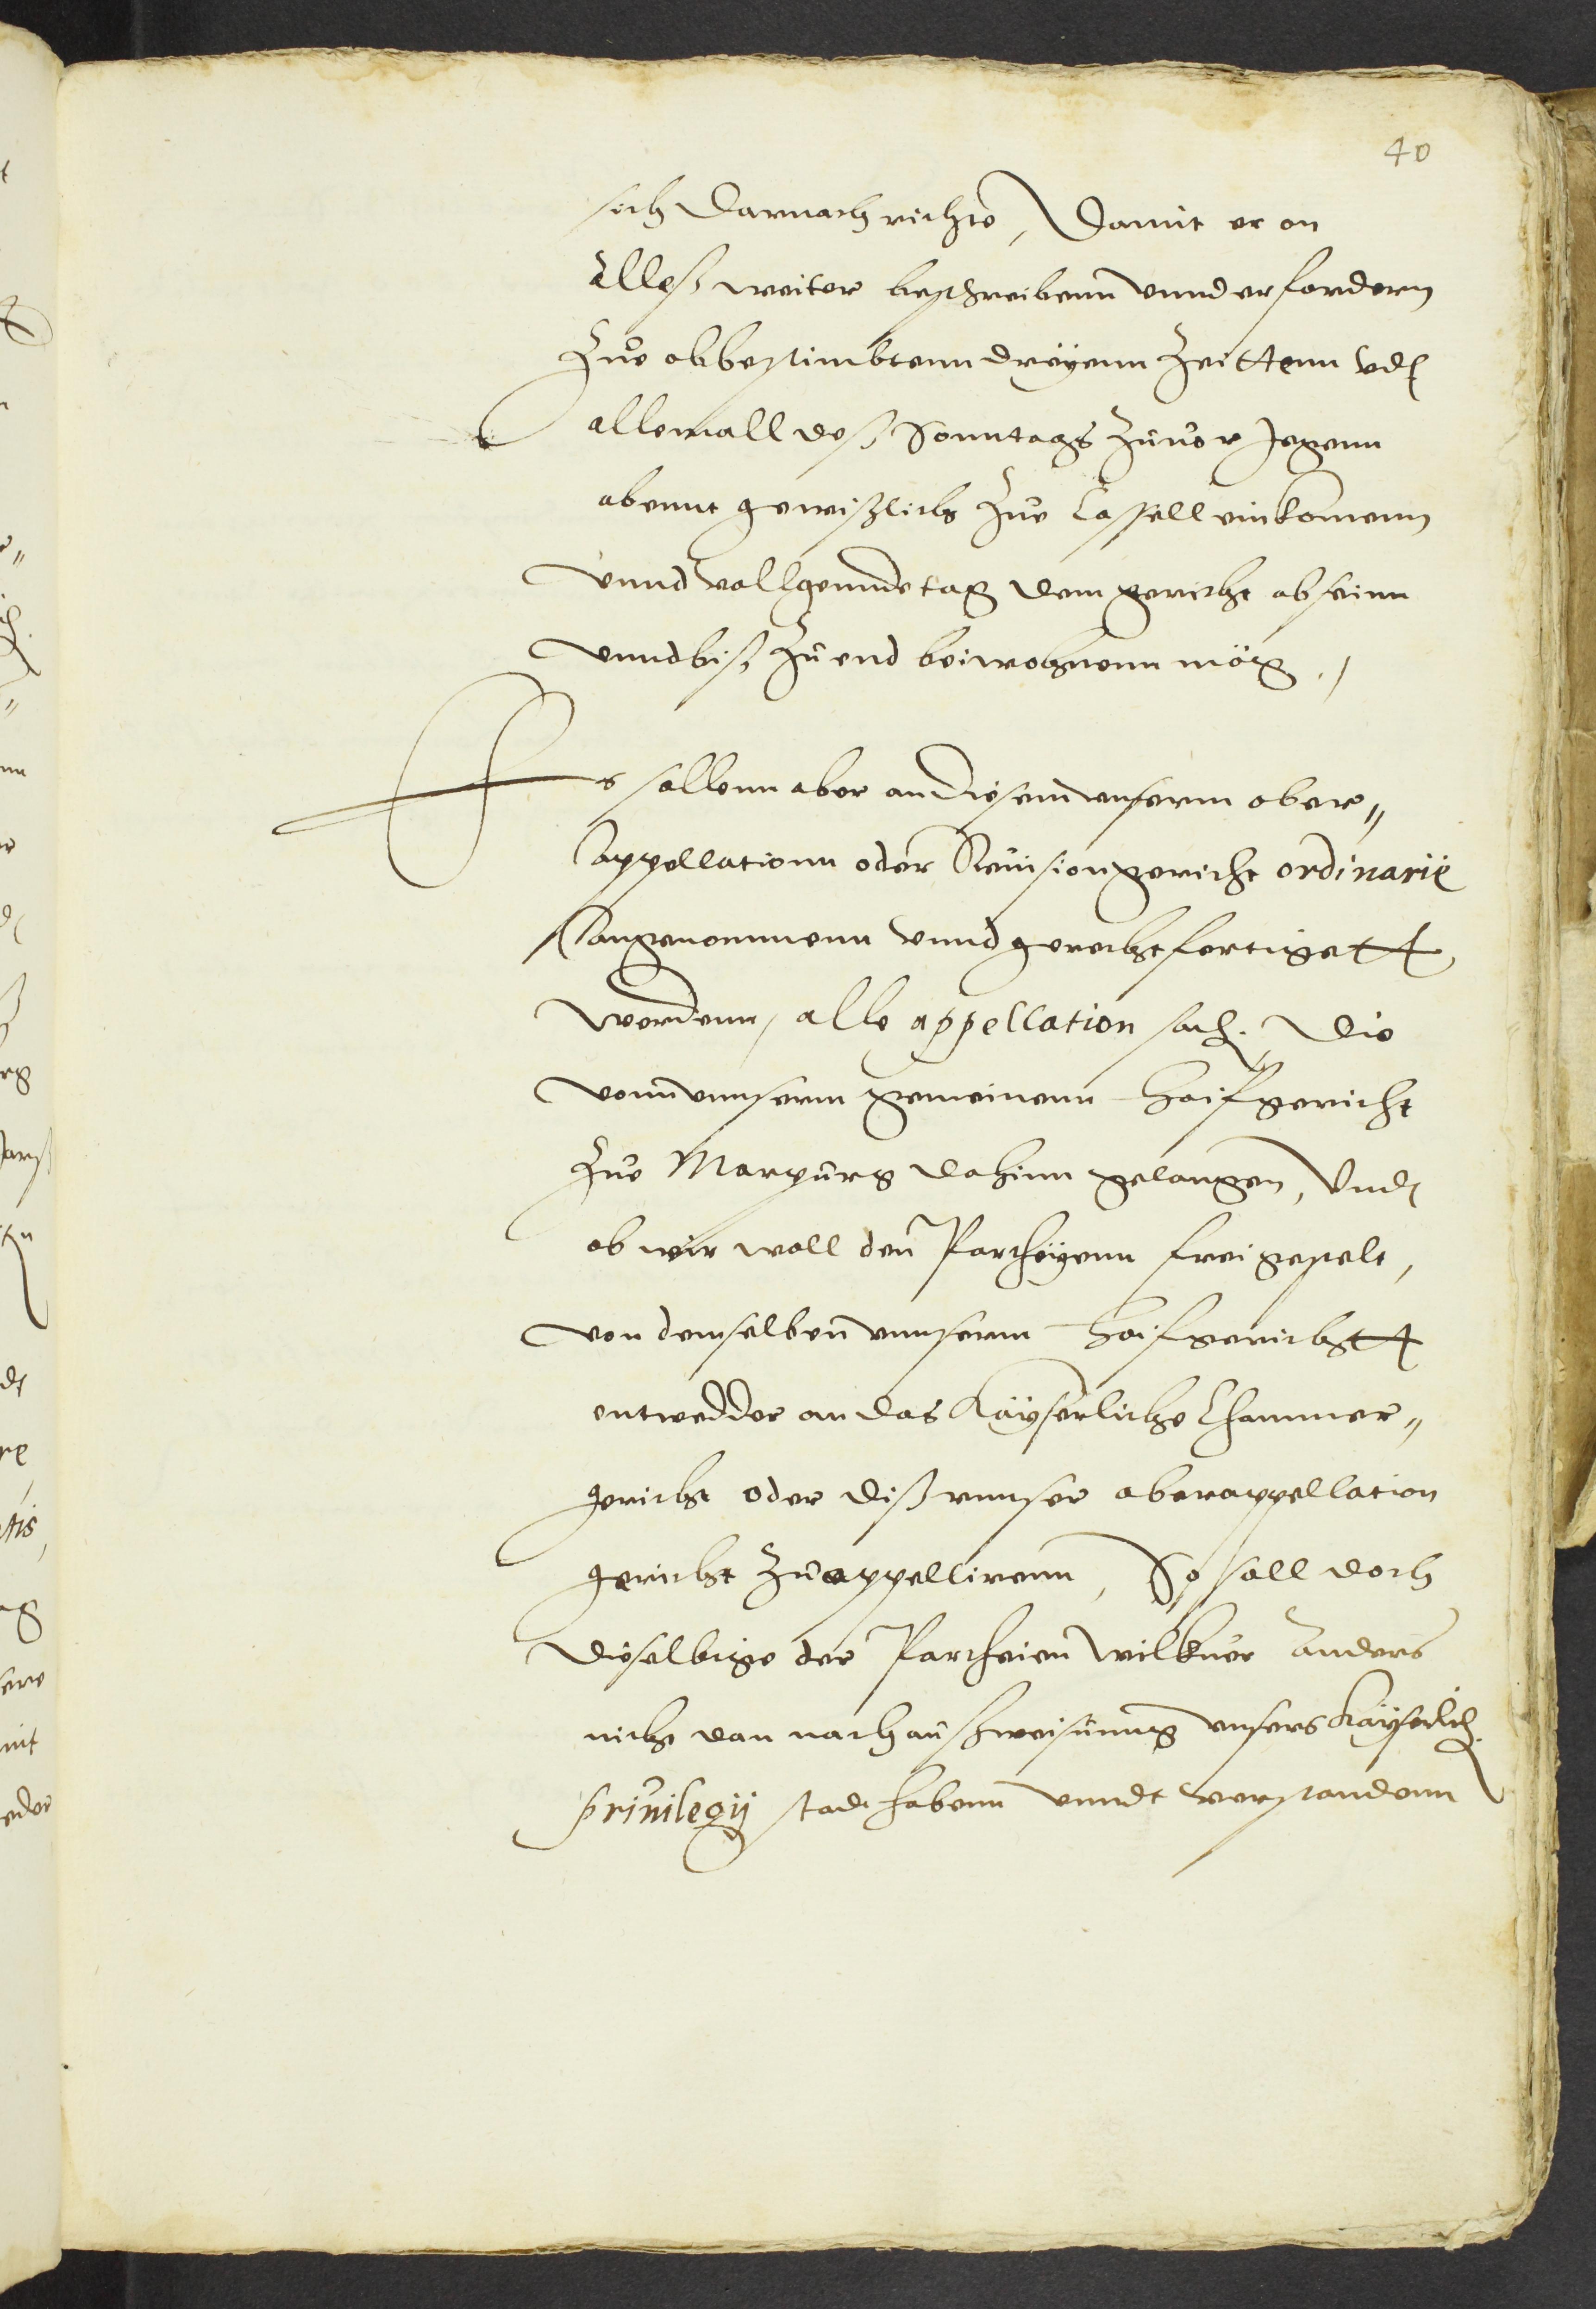 40
sich darnach richte, Damit er on
Alleß weiter beschreibenn vnnd erfordern
Zue obbestimbtenn dreyenn Zeittenn vnd
allemall deß Sonntags Zuuor Jegenn
abennt gewißlich Zue Cassell einkomenn
vnnd vollgennde tag dem gericht abseinn
vnnd biß Zu end beiwohnenn mög ./
Es sollenn aber an diesem vnserm ober„
Appellationn oder Reuision gericht ordinarie
Angenommenn vnnd gerechtfertigett
werdenn, alle appellation sach. die
vonn vnnserm gemeinenn Hoifgericht
Zue Marpurg dahinn gelangen, Vnd
ob wir woll den Partheyenn frei gestelt,
von demselben vnnserm Hoifgerichtt
entwedder an das Kayserliche Chammer„
gericht oder diß vnnser oberappellation
gericht Zu appellirenn, So soll doch
dieselbige der Partheien wilkuer Anders
nicht dan nach außweisunng vnsers Kayserlich.
priuilegij stadt habenn vnndt verstandenn